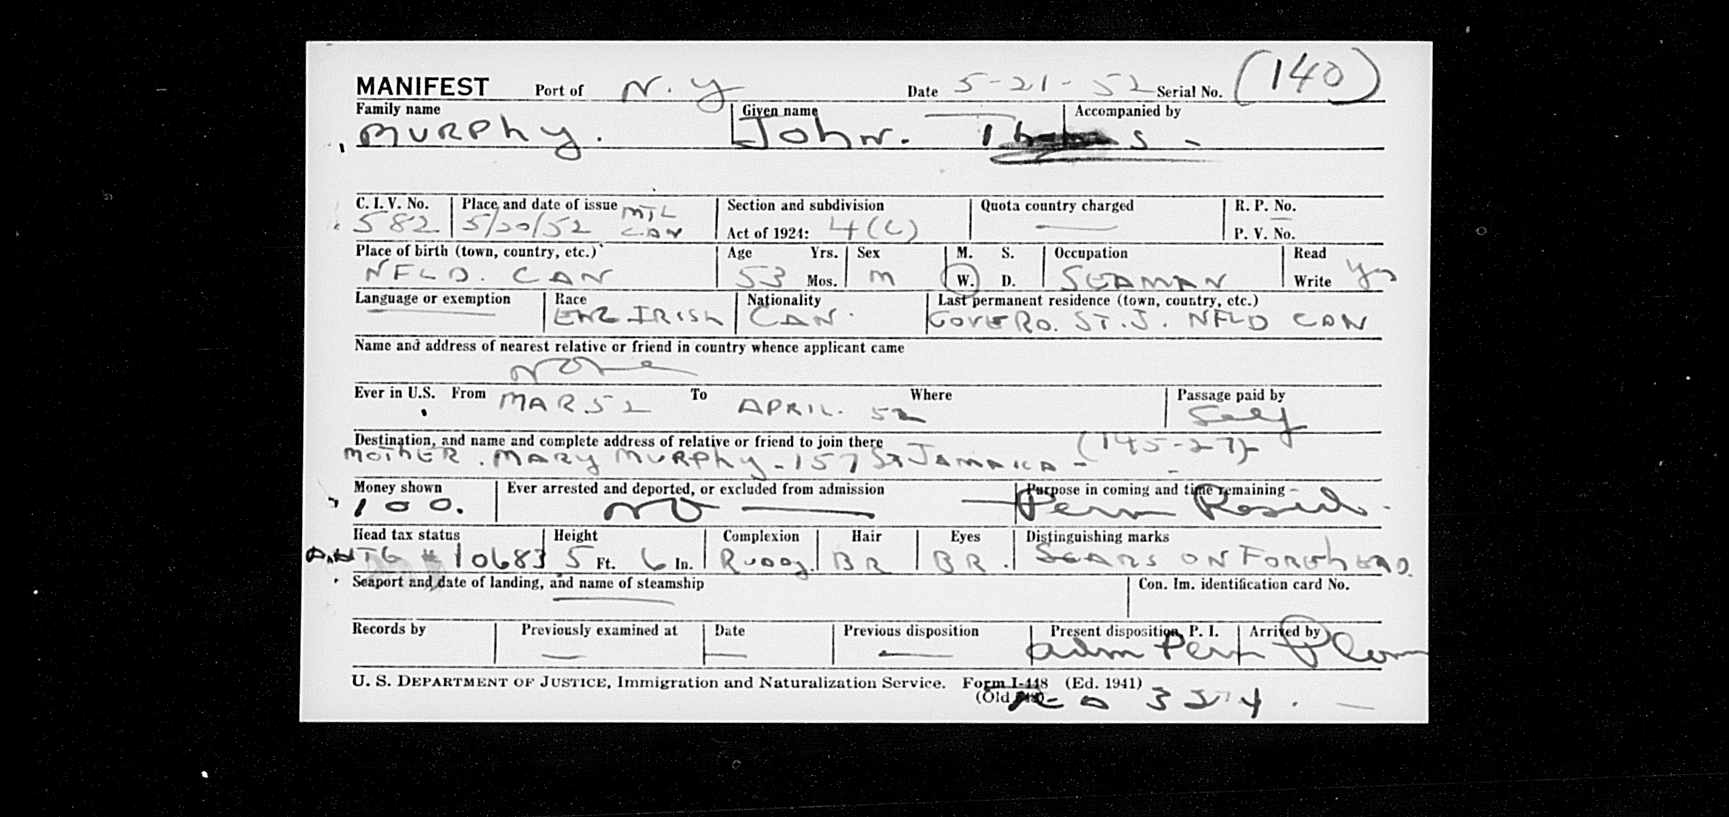 MANIFEST Port of N.Y Date 5-21-52 Serial No. (140)
Family name Given name Accompanied by
MURPhy. John. Thomas -
C. I. V. No. Place and date of issue MTL CAN Section and subdivision Quota country charged R. P. No.
582 5/20/52 Act of 1924: 4(C) — P. V. No.
Place of birth (town, country, etc.) Age Yrs. Sex M. S. Occupation Read
NFLD. CAN 53 Mos. M W. D. SEAMAN Write Yes
Language or exemption Race Nationality Last permanent residence (town, country, etc.)
— ENG IRISH CAN. RD. ST.J. NFLD CAN
Name and address of nearest relative or friend in country whence applicant came
None
Ever in U.S. From MAR 52 To APRIL. 52 Where Passage paid by
Self
Destination, and name and complete address of relative or friend to join there (145-27)
MOTHER. MARY MURPhy - 157 St JAMAICA -
Money shown Ever arrested and deported, or excluded from admission Purpose in coming and time remaining
100. NO — Perm Resid.
Head tax status Height Complexion Hair Eyes Distinguishing marks
# 10683 5 Ft. 6 In. Ruddy. BR BR. SCARS ON FOREhEAD.
Seaport and date of landing, and name of steamship Con. Im. identification card No.
—
Records by Previously examined at Date Previous disposition Present disposition, P. I. Arrived by
— — — adm Perm Plane
U. S. DEPARTMENT OF JUSTICE, Immigration and Naturalization Service. Form I-448 (Ed. 1941)
(Old